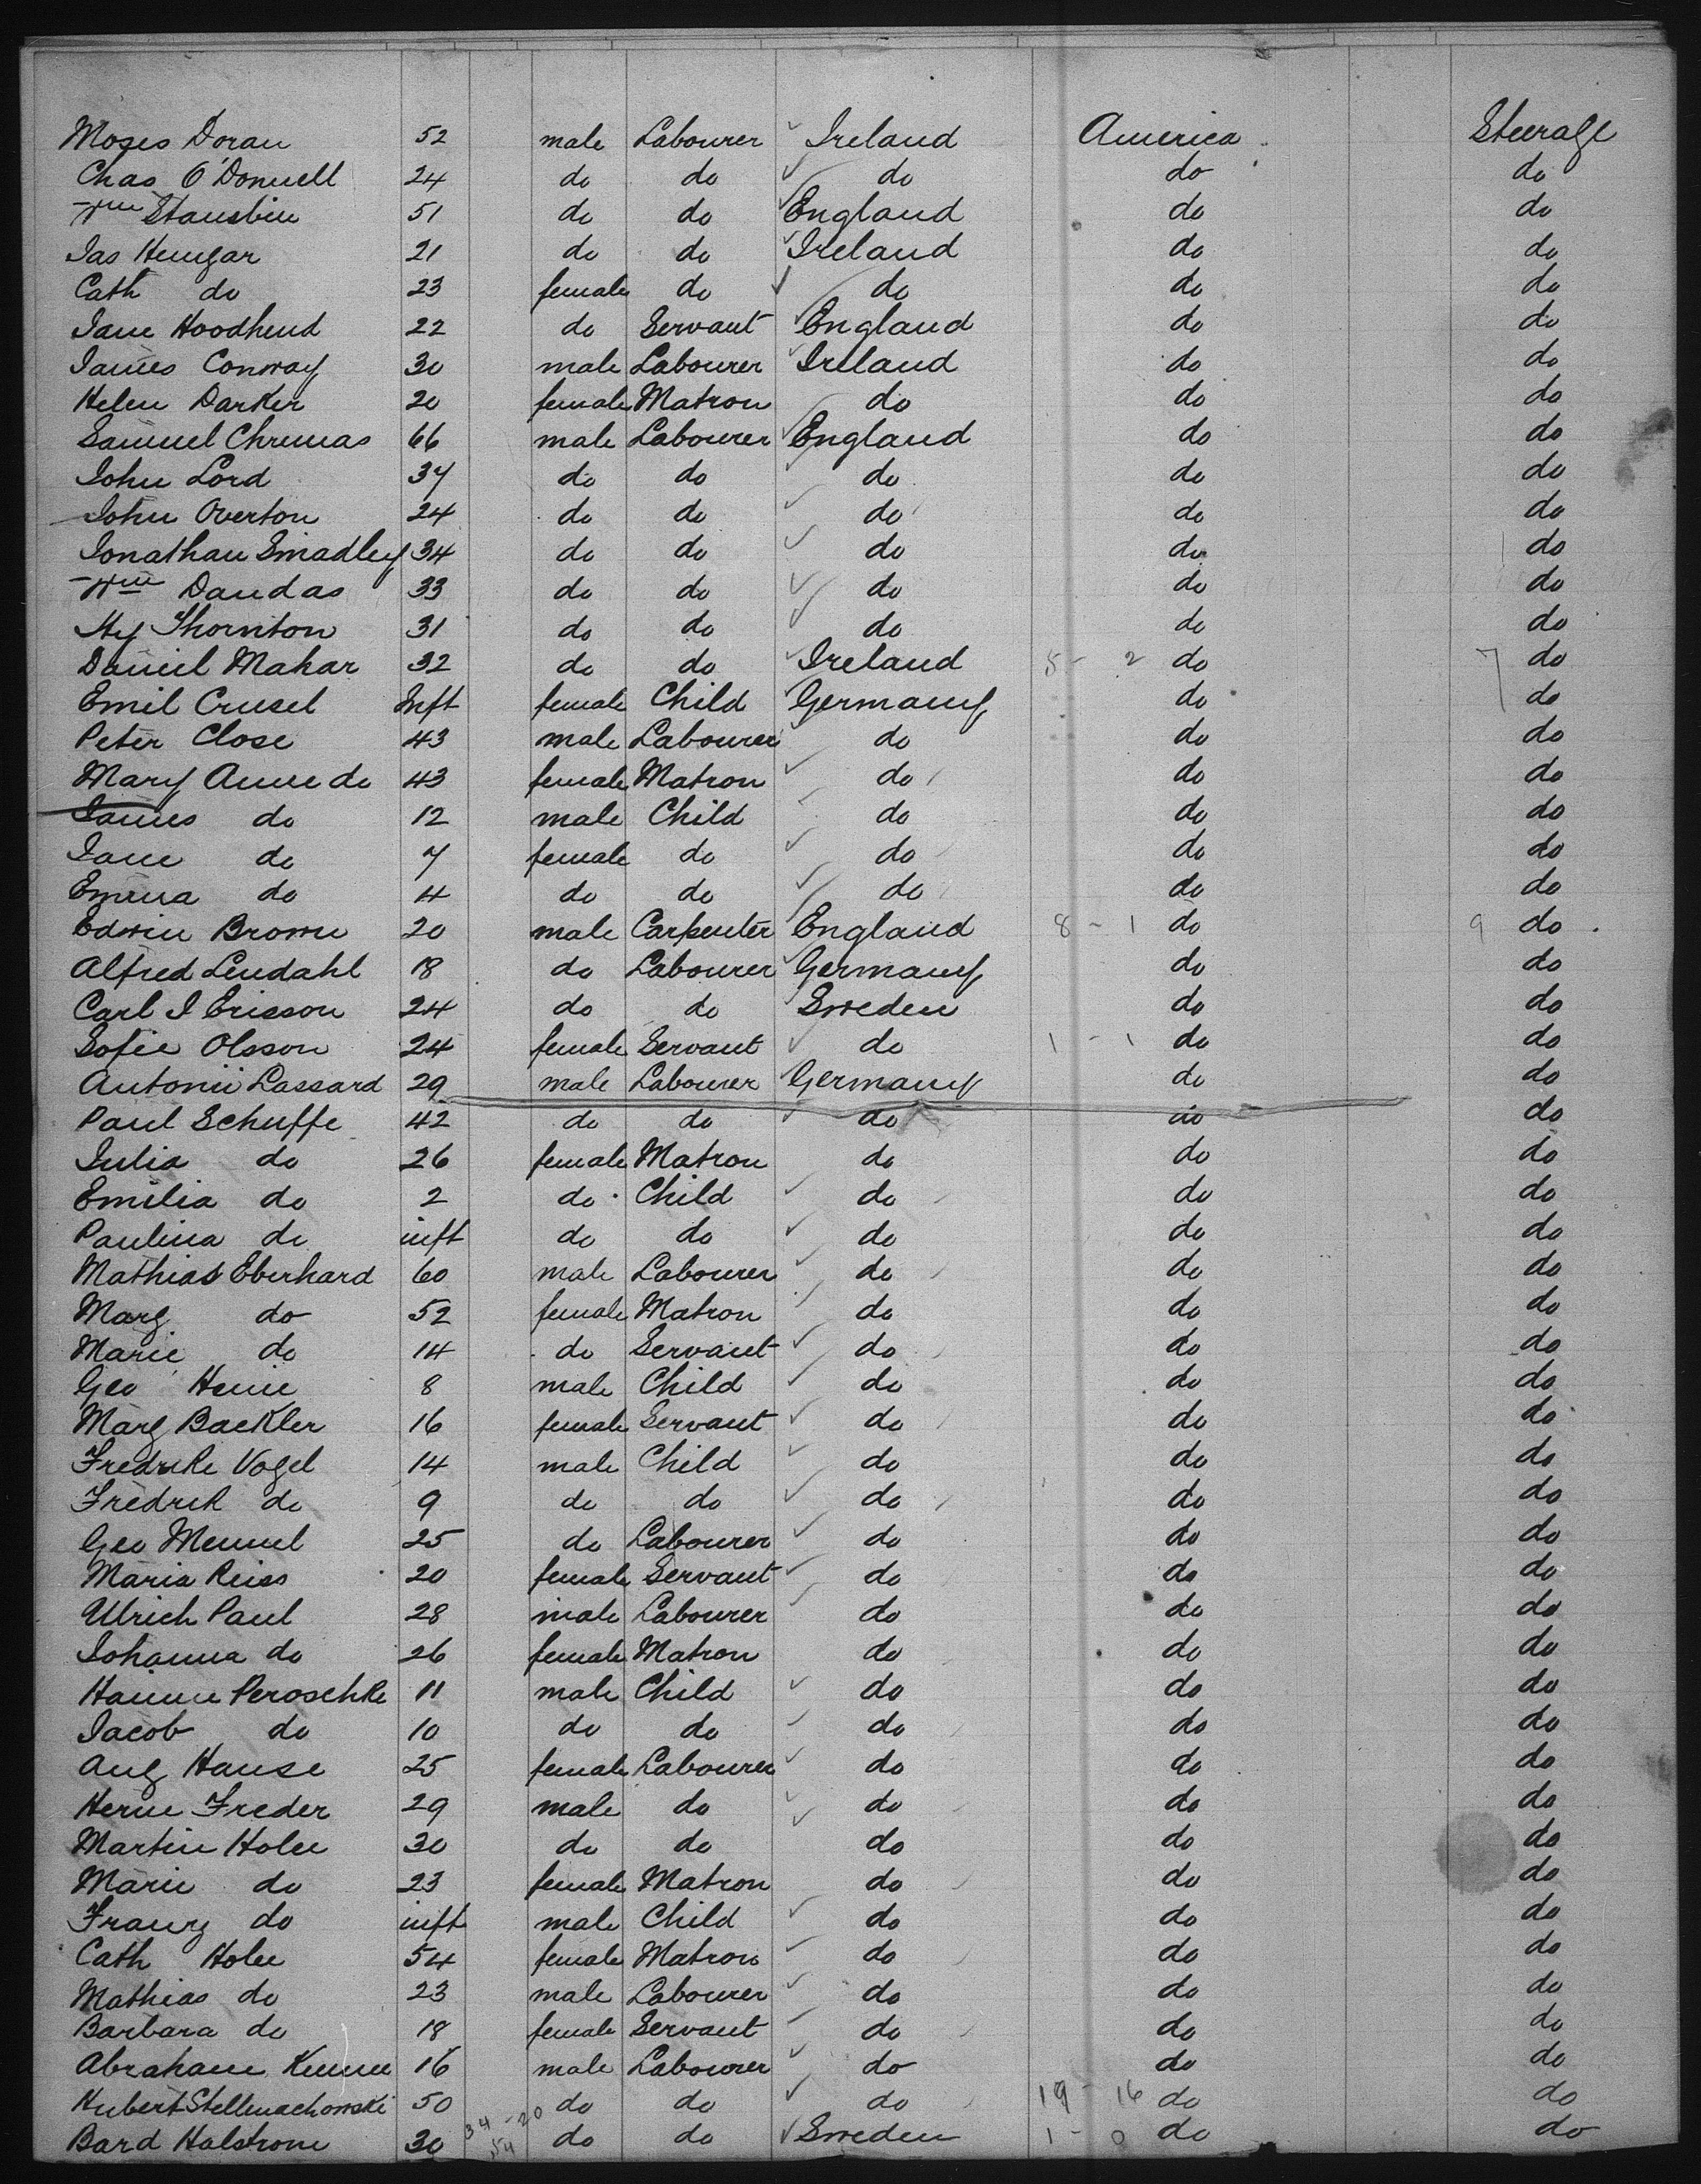 Moses Doran 52 male Labourer Ireland America Steerage
Chas O'Donnell 24 do do do do do
Wm Stansbin 51 do do England do do
Jas Hengar 21 do do Ireland do do
Cath do 23 female do do do do
Jane Hoodhend 22 do Servant England do do
James Conway 30 male Labourer Ireland do do
Helen Darker 20 female Matron do do do
Samuel Chrimas 66 male Labourer England do do
John Lord 37 do do do do do
John Overton 24 do do do do do
Jonathan Smadley 34 do do do do do
Wm Dandas 33 do do do do do
Hy Thornton 31 do do do do do
Daniel Mahar 32 do do Ireland 5 - 2 do 7 do
Emil Crusel Inft female Child Germany do do
Peter Close 43 male Labourer do do do
Mary Anne do 43 female Matron do do do
James do 12 male Child do do do
Jane do 7 female do do do do
Emma do 4 do do do do do
Edwin Brown 20 male Carpenter England 8 - 1 do 9 do
Alfred Lendahl 18 do Labourer Germany do do
Carl J Ericson 24 do do Sweden do do
Sofie Olsson 24 female Servant do 1 - 1 do do
Antonii Lassard 29 male Labourer Germany do do
Paul Schuffe 42 do do do do do
Julia do 26 female Matron do do do
Emilia do 2 do Child do do do
Paulina do inft do do do do do
Mathias Eberhard 60 male Labourer do do do
Marg do 52 female Matron do do do
Marie do 14 do Servant do do do
Geo Heine 8 male Child do do do
Marg Backler 16 female Servant do do do
Fredrike Vogel 14 male Child do do do
Fredrik do 9 do do do do do
Geo Mennel 25 do Labourer do do do
Maria Reiss 20 female Servant do do do
Ulrich Paul 28 male Labourer do do do
Johanna do 26 female Matron do do do
Hanne Peroschke 11 male Child do do do
Jacob do 10 do do do do do
Aug Hause 25 female Labourer do do do
Herm Freder 29 male do do do do
Martin Holec 30 do do do do do
Marie do 23 female Matron do do do
Franz do inft male Child do do do
Cath Holec 54 female Matron do do do
Mathias do 23 male Labourer do do do
Barbara do 18 female Servant do do do
Abraham 16 male Labourer do do do
Hubert Stellmachowski 50 do do do 19 - 16 do do
Bard Halstrom 30 34 - 20 54 do do Sweden 1 - 0 do do